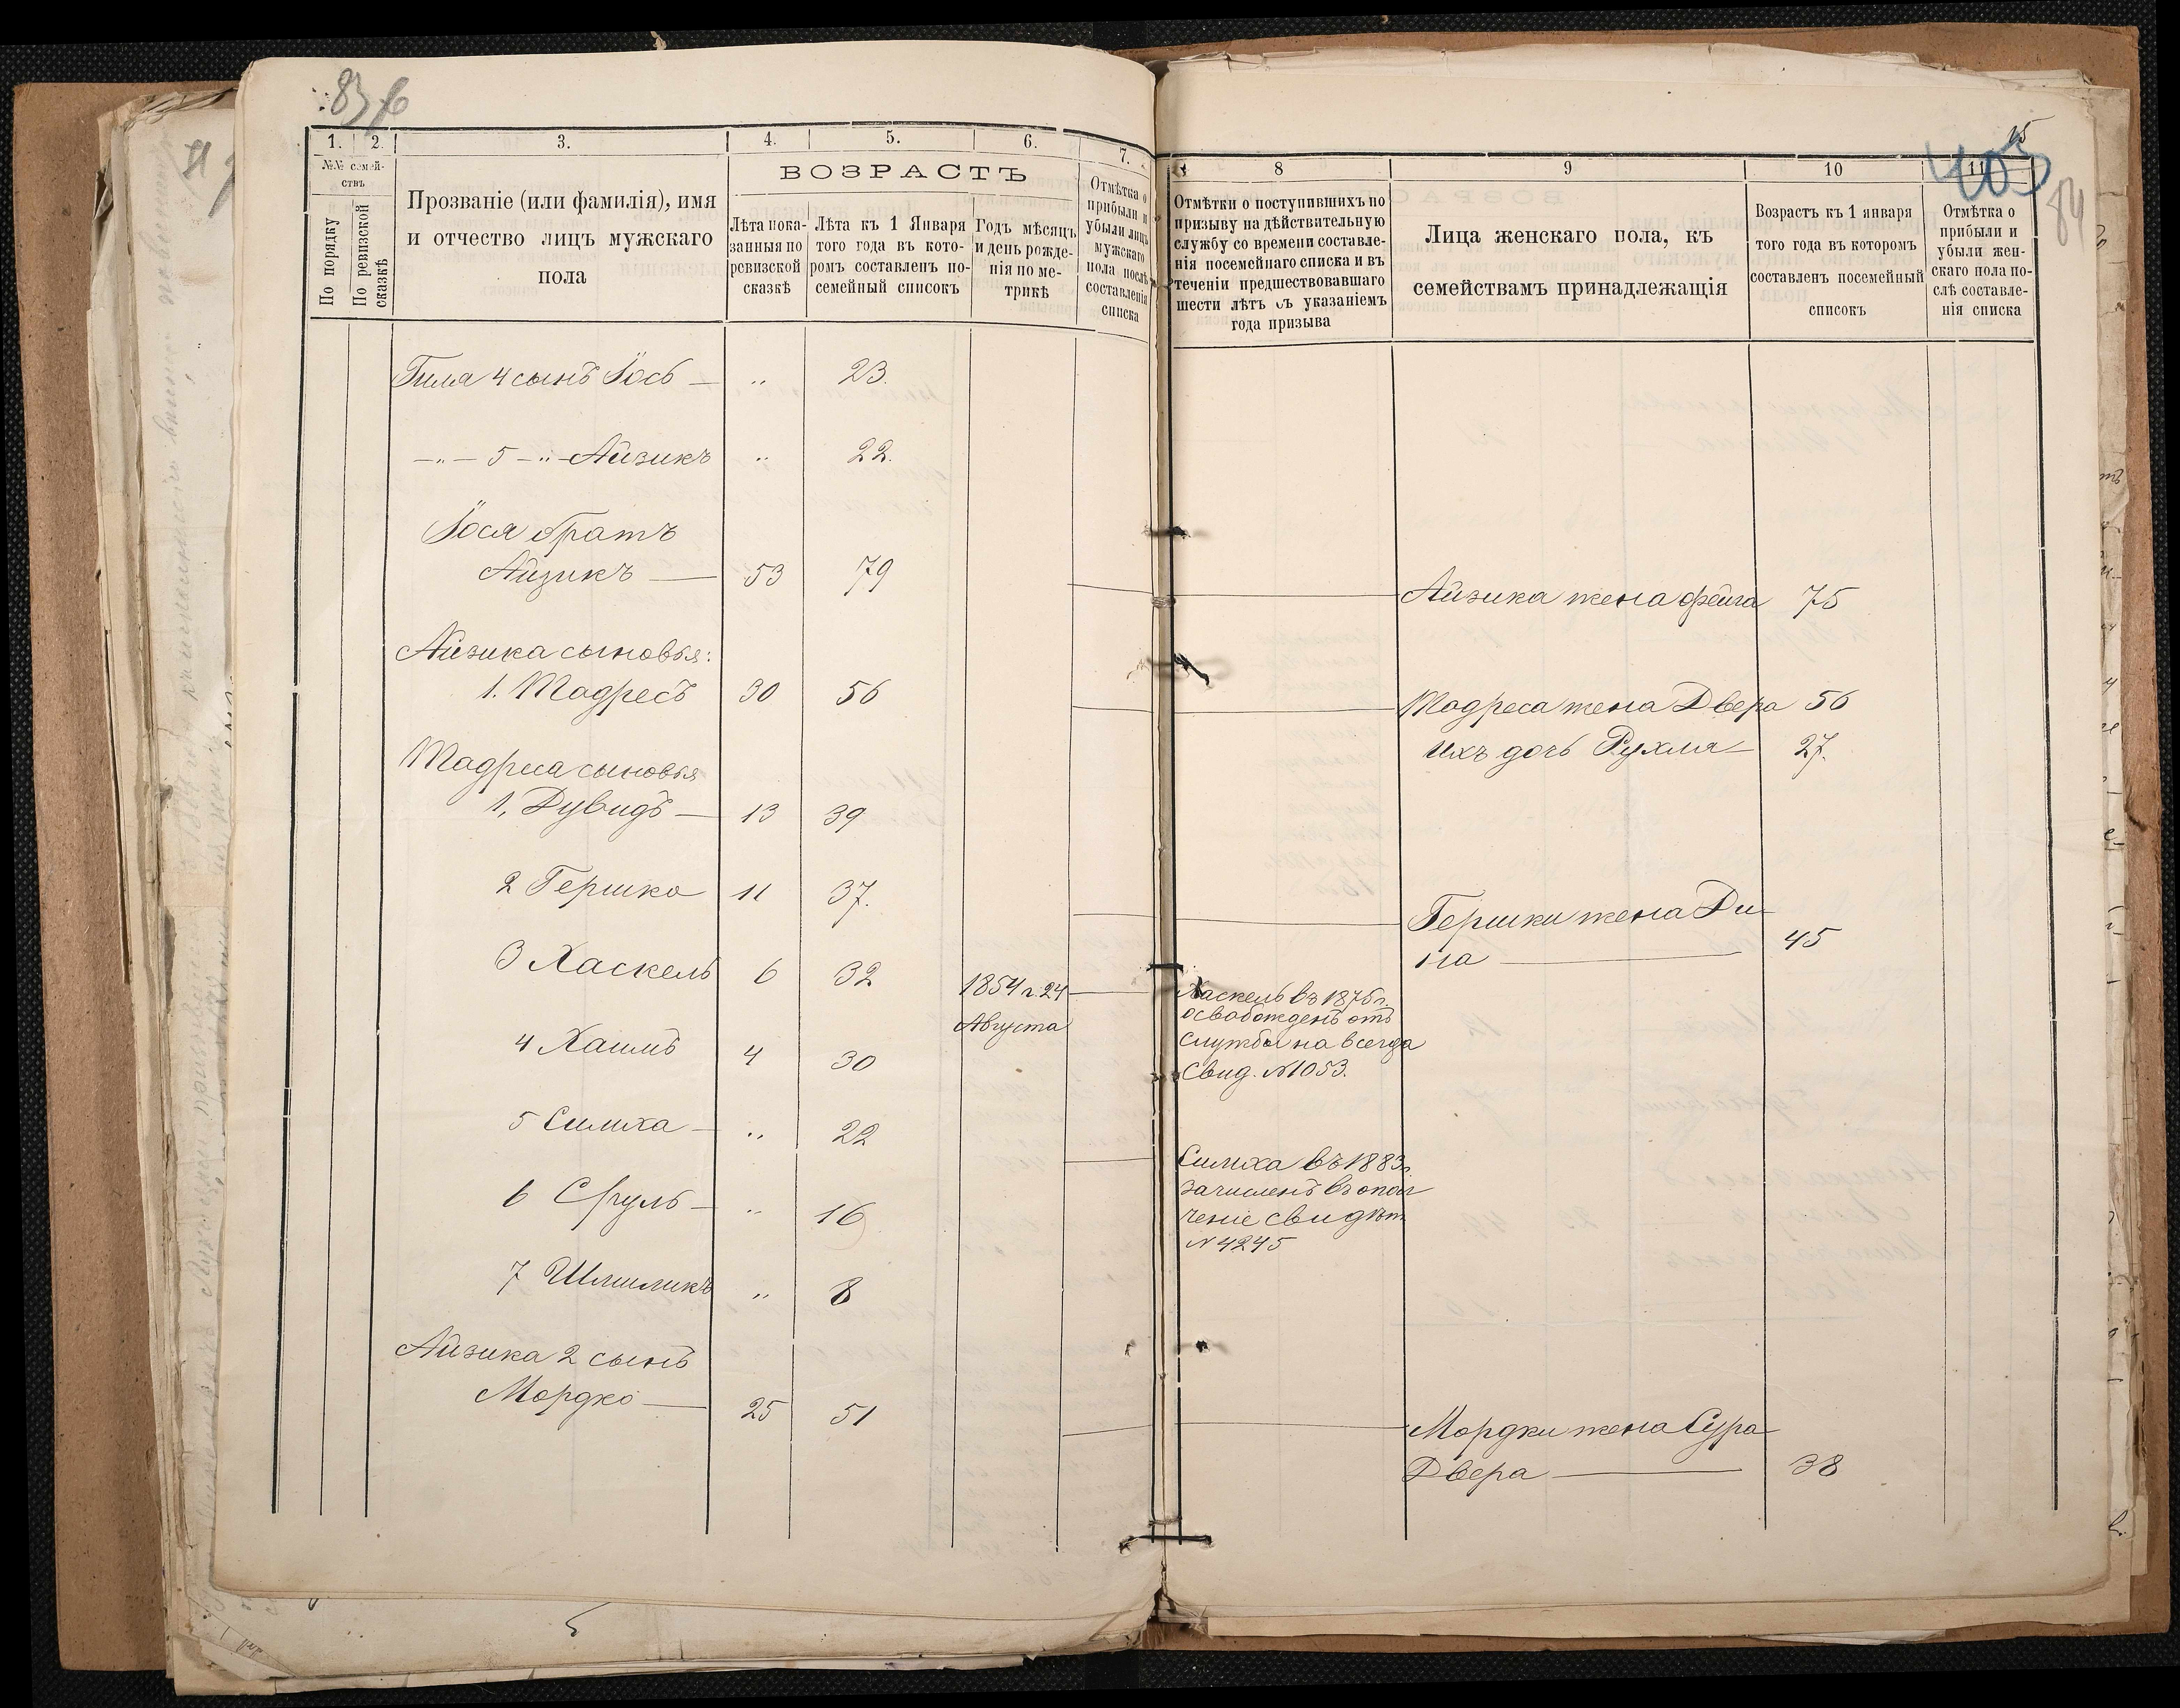 83
1. 2. 3. 4. 5. 6. 7.
№№ семей-
ствъ
По порядку
По ревизской
сказкѣ
Прозваніе (или фамилія), имя
и отчество лицъ мужскаго
пола
ВОЗРАСТЪ
Лѣта пока-
занныя по
ревизской
сказкѣ
Лѣта къ 1 Января
того года въ кото-
ромъ составленъ по-
семейный списокъ
Годъ мѣсяцъ
и день рожде-
нія по ме-
трикѣ
Отмѣтка о
прибыли и
убыли лицъ
мужскаго
пола послѣ
составленія
списка
Гила 4 сынъ Іось — „ 23.
—„— 5 —„— Айзикъ „ 22.
Іося братъ
Айзикъ — 53 79
Айзика сыновья:
1. Тадресъ 30 56
Тадреса сыновья
1, Дувидъ — 13 39
2 Гершко 11 37.
3 Хаскель 6 32 1854 г. 24
Августа
4 Хаимъ 4 30
5 Симха — „ 22
6 Сруль — „ 16
7 Шлиликъ „ 8
Айзика 2 сынъ
Мордко — 25 51
15
405
84
8 9 10 11
Отмѣтки о поступившихъ по
призыву на дѣйствительную
службу со времени составле-
нія посемейнаго списка и въ
теченіи предшествовавшаго
шести лѣтъ съ указаніемъ
года призыва
Лица женскаго пола, къ
семействамъ принадлежащія
Возрастъ къ 1 января
того года въ которомъ
составленъ посемейный
списокъ
Отмѣтка о
прибыли и
убыли жен-
скаго пола по-
слѣ составле-
нія списка
Айзика жена Фейга 75
Тадреса жена Двера 56
Ихъ дочь Рухля — 27.
Гершки жена Ди-
на — 45
Хаскель въ 1875 г.
освобожденъ отъ
службы на всегда
Свид. №1053.
Симха въ 1883 г.
зачисленъ въ опол
ченіе свидѣт.
№ 4245
Мордки жена Сура
Двера — 38